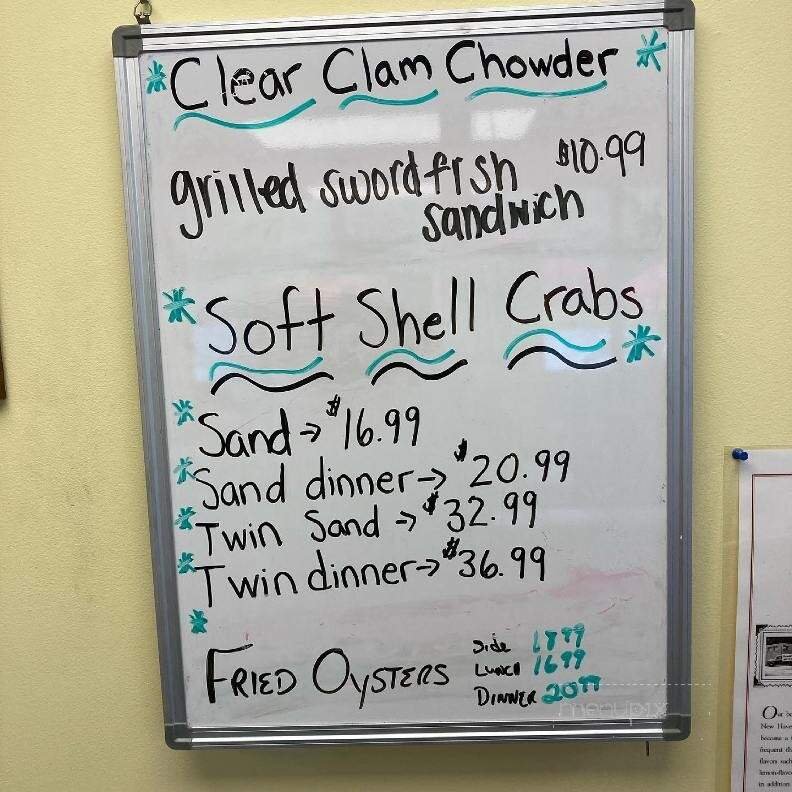 Clear Clam Chowder
grilled swordfish $10.99
sandwich
Soft Shell Crabs
Sand → $16.99
Sand dinner → $20.99
Twin Sand → $32.99
Twin dinner → $36.99
FRIED OYSTERS
Side 18 99
LUNCH 16 99
DINNER 20 99
menupix
Our
New Have
become a
frequent th
flavors such
lemon-flavo
in addition